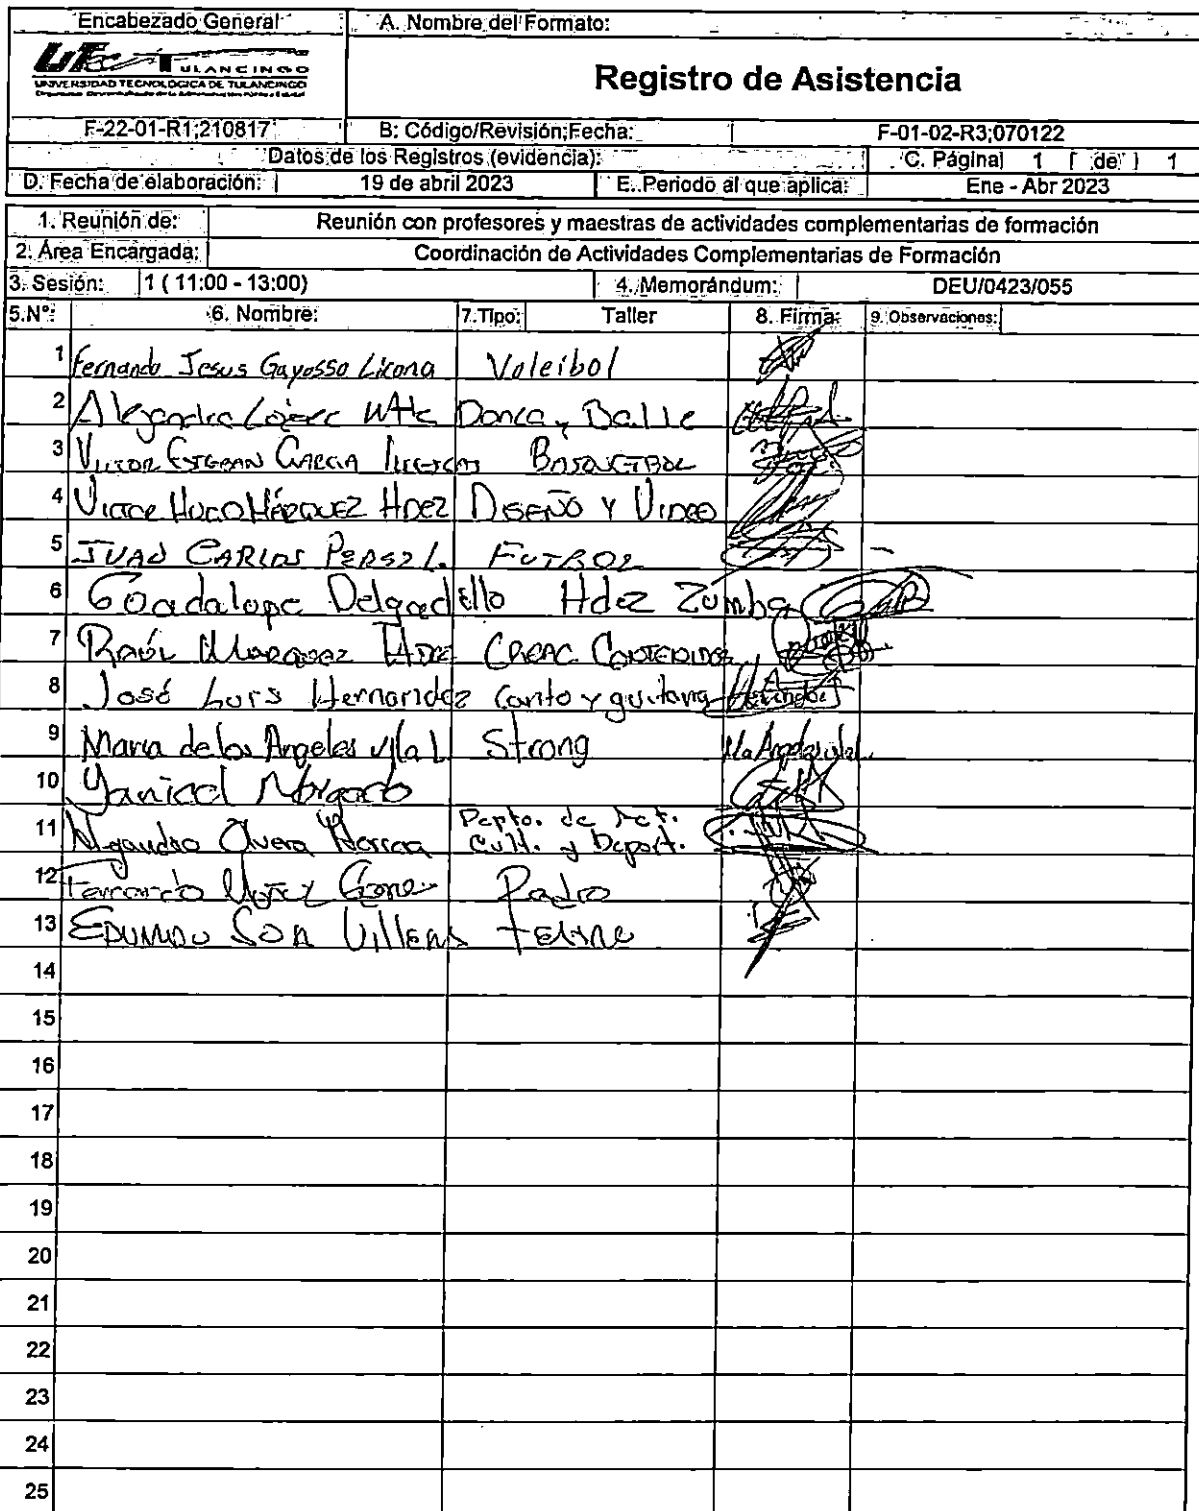 Encabezado General A. Nombre del Formato:
UTec TULANCINGO
UNIVERSIDAD TECNOLÓGICA DE TULANCINGO
Registro de Asistencia
F-22-01-R1;210817 B: Código/Revisión;Fecha: F-01-02-R3;070122
Datos de los Registros (evidencia): C. Página 1 de 1
D. Fecha de elaboración: 19 de abril 2023 E. Periodo al que aplica: Ene - Abr 2023
1. Reunión de: Reunión con profesores y maestras de actividades complementarias de formación
2. Área Encargada: Coordinación de Actividades Complementarias de Formación
3. Sesión: 1 ( 11:00 - 13:00) 4. Memorándum: DEU/0423/055
5.N°: 6. Nombre: 7.Tipo: Taller 8. Firma: 9. Observaciones:
1 Fernando Jesus Gayosso Licona Voleibol
2 Danza y Baile
3 Victor Esteban Garcia
4 Victor Hugo Márquez Hdez Diseño y Video
5 JUAN CARLOS PEREZ L. FUTBOL
6 Goadalope Delgadello Hdez Zumba
7 Raúl Marquez Hdez Creac. Contenidos
8 José Luis Hernandez Canto y guitarra
9 Maria de los Angeles Vila L Strong
10
11 Alejandro Olvera Depto. de Act.
Cult. y Deport.
12 Fernando Radio
13
14
15
16
17
18
19
20
21
22
23
24
25